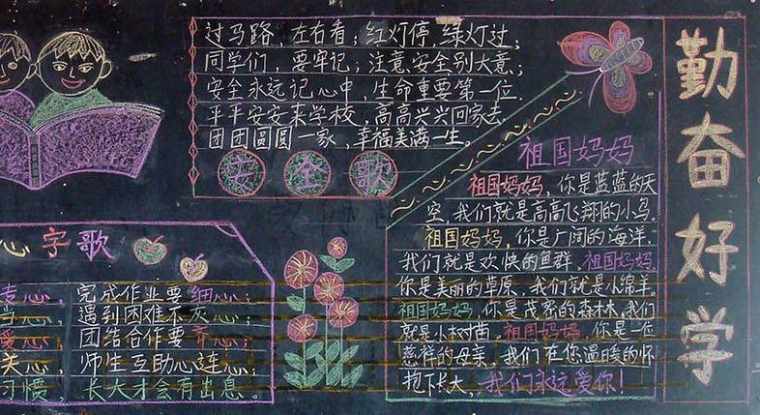 过马路，左右看；红灯停，绿灯过；
同学们，要牢记；注意安全别大意；
安全永远记心中，生命重要第一位.
平平安安来学校，高高兴兴回家去.
团团圆圆一家，幸福美满一生。
安全歌
祖国妈妈
祖国妈妈，你是蓝蓝的天
空，我们就是高高飞翔的小鸟.
祖国妈妈，你是广阔的海洋.
我们就是欢快的鱼群，祖国妈妈，
你是美丽的草原，我们就是小绵羊，
祖国妈妈，你是茂密的森林，我们
就是小树苗，祖国妈妈，你是一位
慈祥的母亲，我们在您温暖的怀
抱下长大，我们永远爱你！
勤奋好学
心字歌
心，完成作业要细心；
心，遇到困难不灰心；
爱心，团结合作要齐心；
关心，师生互助心连心；
习惯，长大才会有出息.